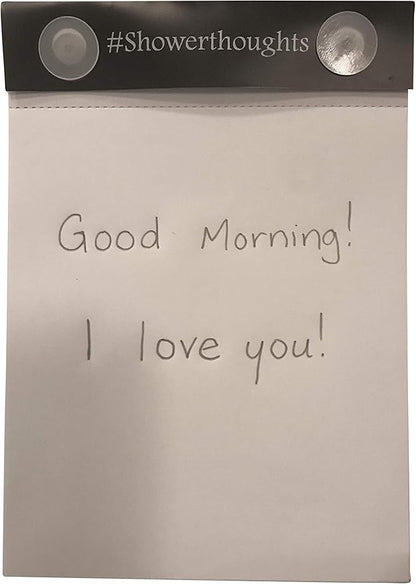 #Showerthoughts
Good Morning!
I love you!